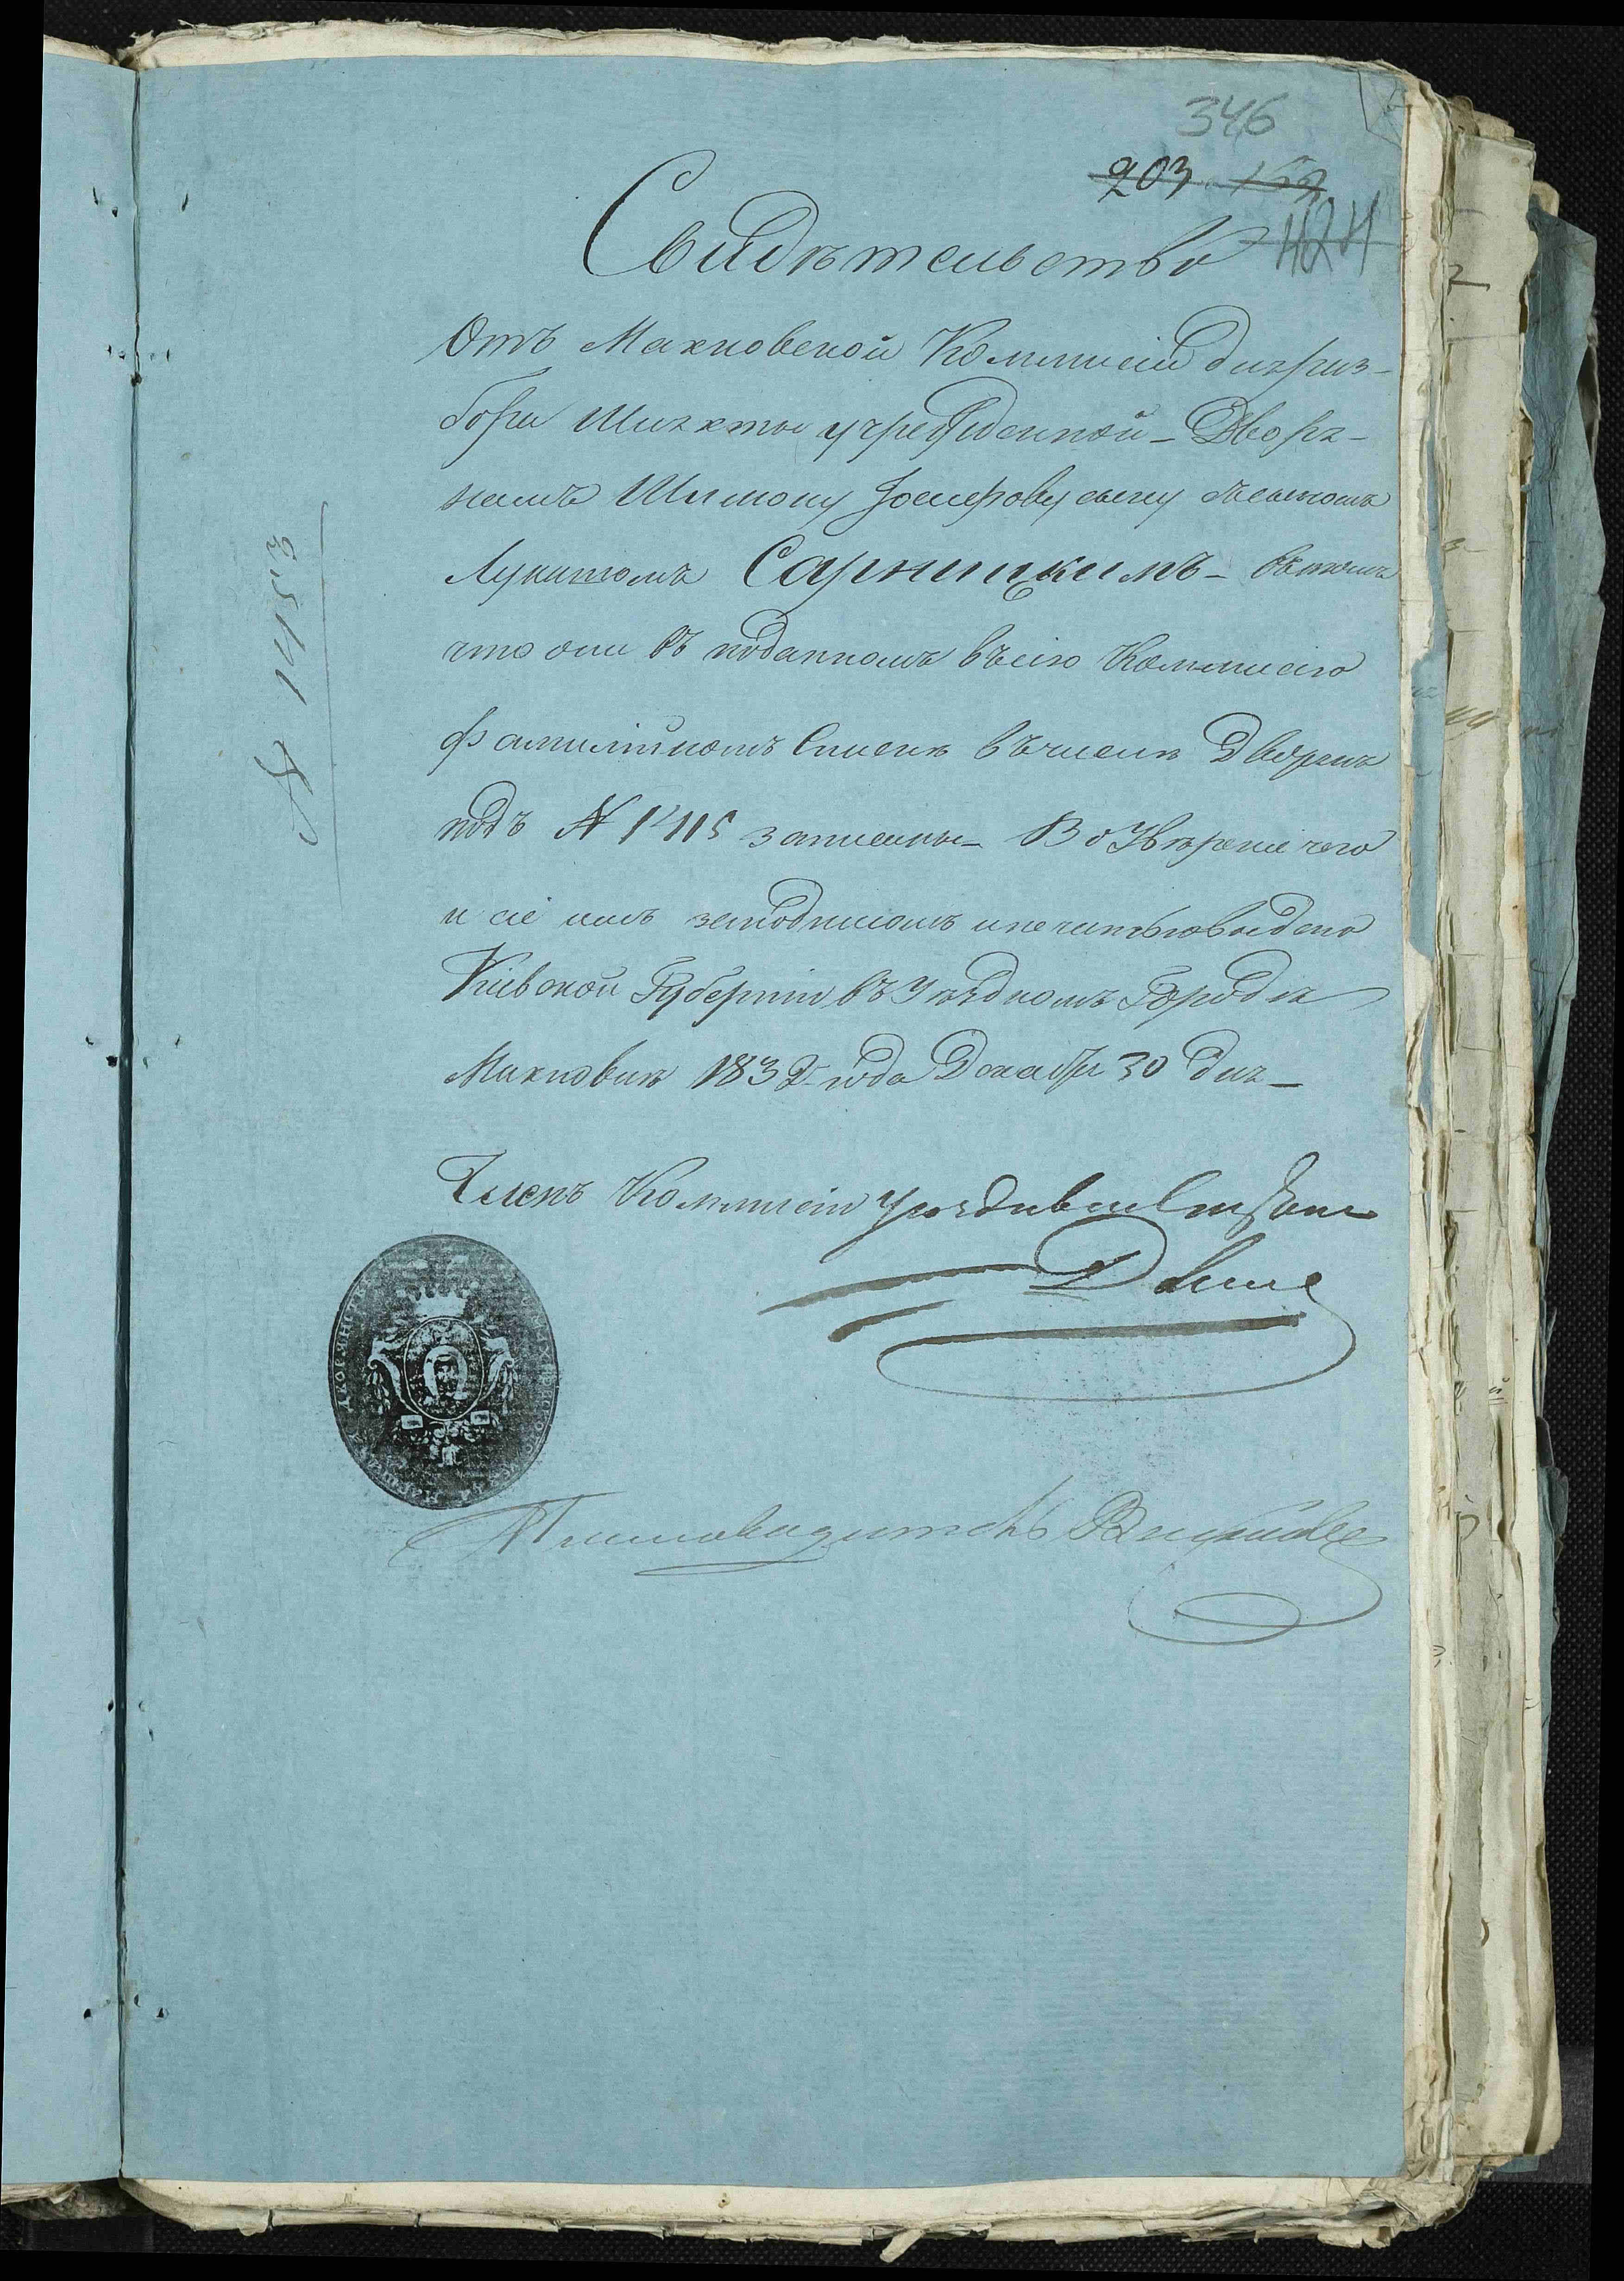 346
203 159
424
Свидѣтельство
Отъ Махновской Коммисіи для раз-
бора Шляхты учрежденной - Дворя-
намъ Шимону Іосифову сыну съ сыномъ
Лукишомъ Сарницкимъ - въ томъ
что они въ поданномъ въ сію Коммисію
фамилійномъ Списке въ числѣ Дворянъ
подъ N 1415 записаны - Во Увѣреніе чего
и сіе имъ за подписомъ и печатью выдано
Кіевской Губерніи въ Уѣздномъ Городѣ
Махновкѣ 1832 года Декабря 30 дня -
Членъ Коммисіи
Писмоводитель